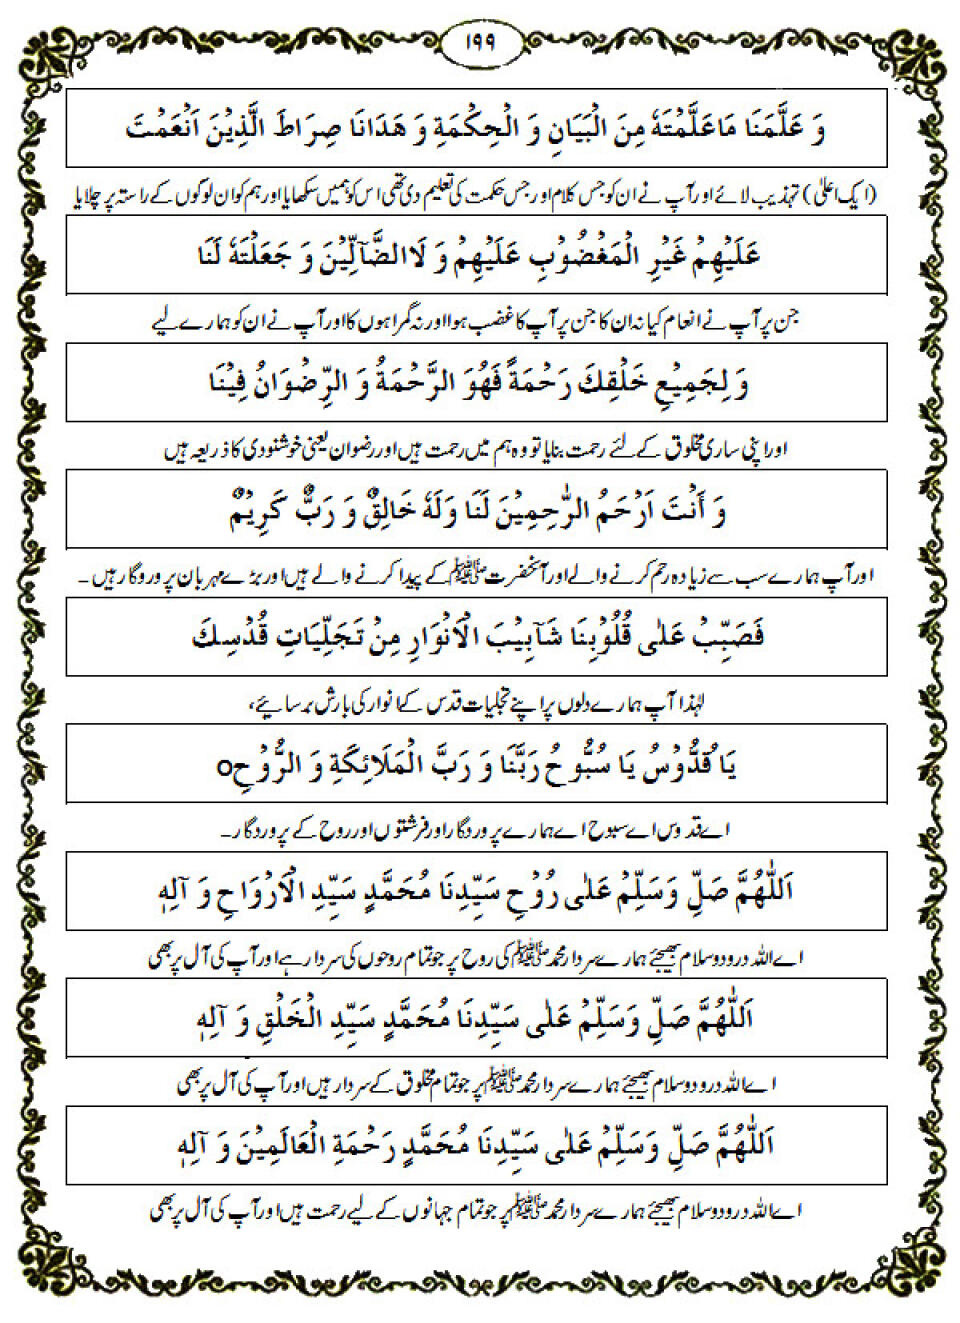 ۱۹۹
وَ عَلَّمَنَا مَاعَلَّمْتَهٗ مِنَ الْبَيَانِ وَ الْحِكْمَةِ وَ هَدَانَا صِرَاطَ الَّذِيْنَ اَنْعَمْتَ
(ایک اعلیٰ) تہذیب لائے اور آپ نے ان کو جس کلام اور جس حکمت کی تعلیم دی تھی اس کو ہمیں سکھایا اور ہم کو ان لوگوں کے راستہ پر چلایا
عَلَيْهِمْ غَيْرِ الْمَغْضُوْبِ عَلَيْهِمْ وَ لَاالضَّآلِّيْنَ وَ جَعَلْتَهٗ لَنَا
جن پر آپ نے انعام کیا نہ ان کا جن پر آپ کا غضب ہوا اور نہ گمراہوں کا اور آپ نے ان کو ہمارے لیے
وَ لِجَمِيْعِ خَلْقِكَ رَحْمَةً فَهُوَ الرَّحْمَةُ وَ الرِّضْوَانُ فِيْنَا
اور اپنی ساری مخلوق کے لئے رحمت بنایا تو وہ ہم میں رحمت ہیں اور رضوان یعنی خوشنودی کا ذریعہ ہیں
وَ أَنْتَ اَرْحَمُ الرّٰحِمِيْنَ لَنَا وَلَهٗ خَالِقٌ وَ رَبٌّ كَرِيْمٌ
اور آپ ہمارے سب سے زیادہ رحم کرنے والے اور آنحضرت ﷺ کے پیدا کرنے والے ہیں اور بڑے مہربان پروردگار ہیں۔
فَصَبِّبْ عَلٰى قُلُوْبِنَا شَآبِيْبَ الْاَنْوَارِ مِنْ تَجَلِّيَاتِ قُدْسِكَ
لہٰذا آپ ہمارے دلوں پر اپنے تجلیات قدس کے انوار کی بارش برسائیے،
يَا قُدُّوْسُ يَا سُبُّوْحُ رَبَّنَا وَ رَبَّ الْمَلَائِكَةِ وَ الرُّوْحِo
اے قدوس اے سبوح اے ہمارے پروردگار اور فرشتوں اور روح کے پروردگار۔
اَللّٰهُمَّ صَلِّ وَسَلِّمْ عَلٰى رُوْحِ سَيِّدِنَا مُحَمَّدٍ سَيِّدِ الْاَرْوَاحِ وَ آلِهٖ
اے اللہ درود و سلام بھیجئے ہمارے سردار محمد ﷺ کی روح پر جو تمام روحوں کی سردار ہے اور آپ کی آل پر بھی
اَللّٰهُمَّ صَلِّ وَسَلِّمْ عَلٰى سَيِّدِنَا مُحَمَّدٍ سَيِّدِ الْخَلْقِ وَ آلِهٖ
اے اللہ درود و سلام بھیجئے ہمارے سردار محمد ﷺ پر جو تمام مخلوق کے سردار ہیں اور آپ کی آل پر بھی
اَللّٰهُمَّ صَلِّ وَسَلِّمْ عَلٰى سَيِّدِنَا مُحَمَّدٍ رَحْمَةِ الْعَالَمِيْنَ وَ آلِهٖ
اے اللہ درود و سلام بھیجئے ہمارے سردار محمد ﷺ پر جو تمام جہانوں کے لیے رحمت ہیں اور آپ کی آل پر بھی